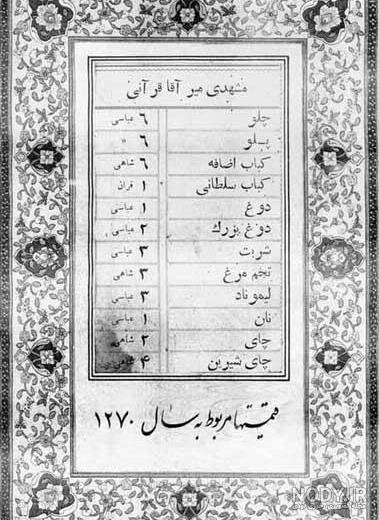 مشهدی میر آقا قرآنی
چلو ۶ عباسی
پلو ۶ "
کباب اضافه ۶ شاهی
کباب سلطانی ۱ قران
دوغ ۱ عباسی
دوغ بزرك ۲ عباسی
شربت ۳ عباسی
تخم مرغ ۳ شاهی
لیموناد ۳ عباسی
نان ۱ عباسی
چای ۲ شاهی
چای شیرین ۴ شاهی
قیمتها مربوط به سال ۱۲۷۰
NODY.IR